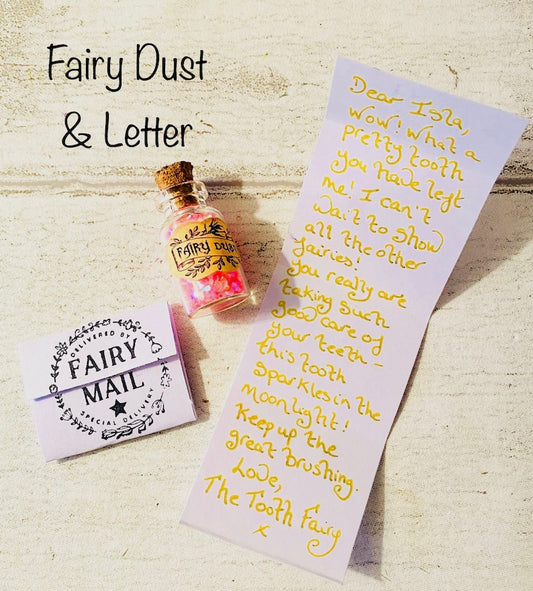 Fairy Dust
& Letter
FAIRY DUST
DELIVERED BY
FAIRY
MAIL
SPECIAL DELIVERY
Dear Isla,
Wow! What a
pretty tooth
you have left
me! I can't
wait to show
all the other
fairies!
You really are
taking such
good care of
your teeth -
this tooth
sparkles in the
moonlight!
Keep up the
great brushing.
Love,
The Tooth Fairy
x